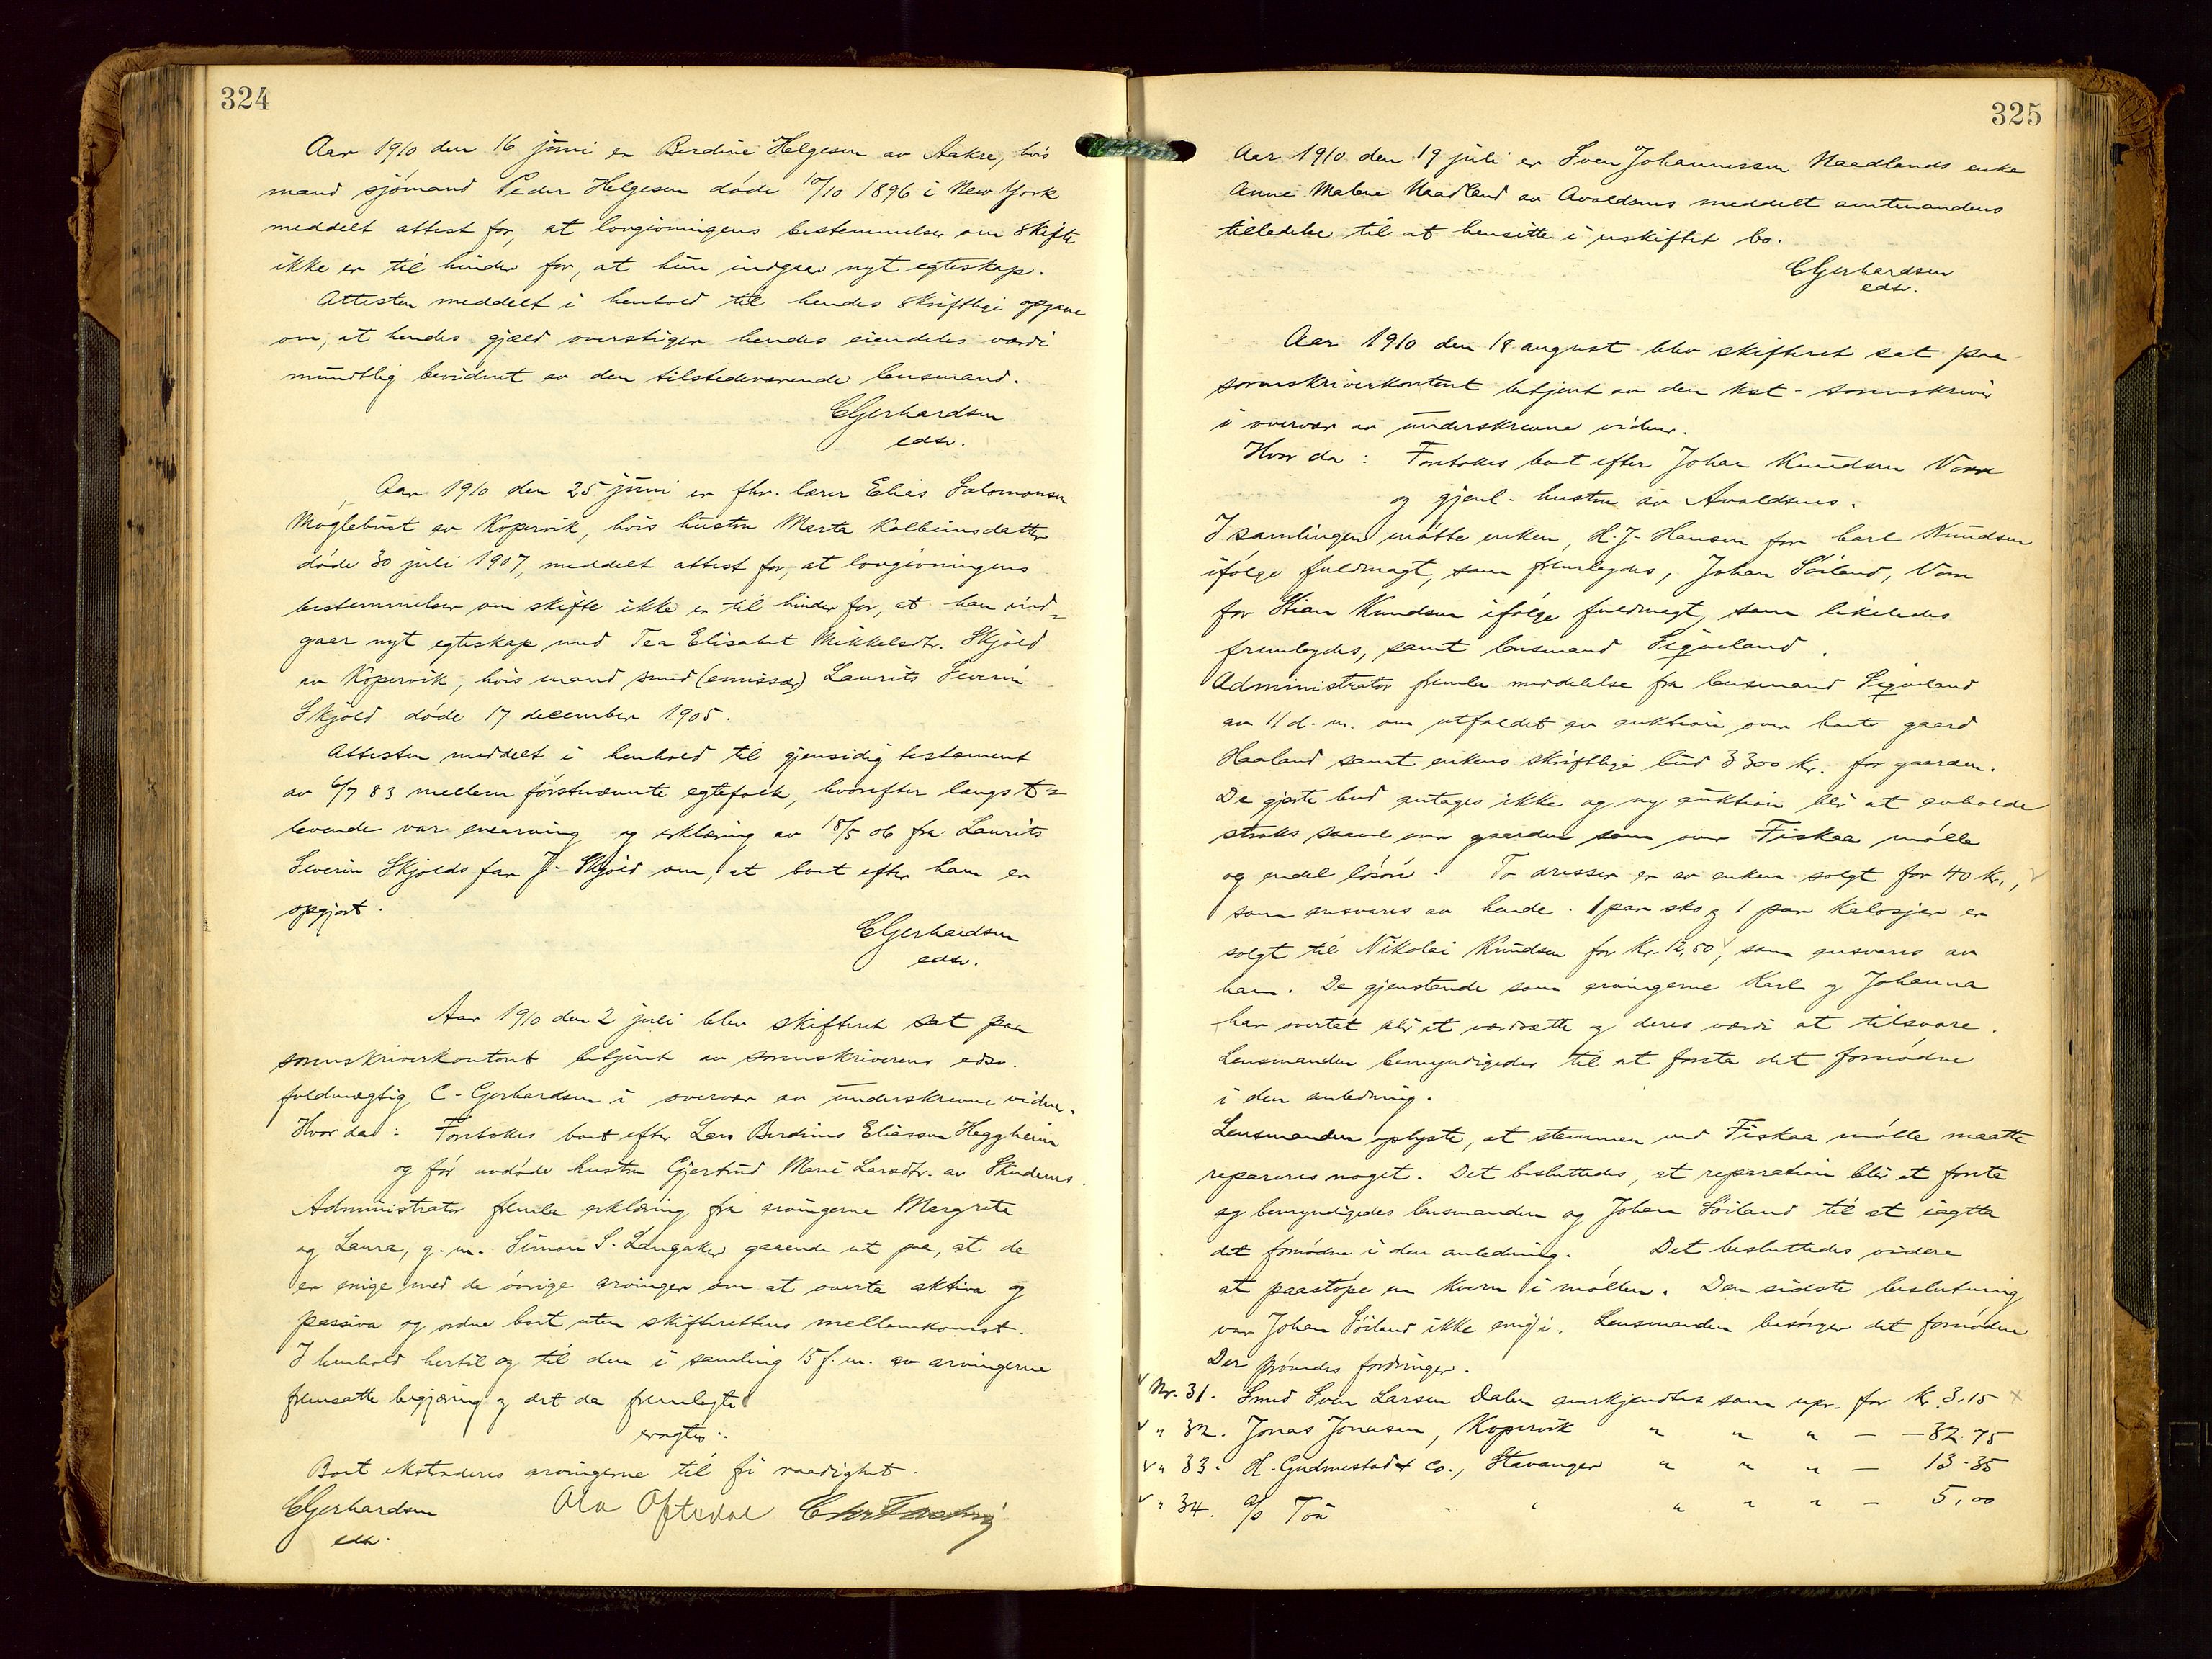 324
Aar 1910 den 16 juni er Berdine Helgesen av Aakre, hvis
mand sjömand Peder Helgesen döde 10/10 1896 i New York
meddelt attest for, at lovgivningens bestemmelser om skifte
ikke er til hinder for, at hun indgaar nyt egteskap.
Attesten meddelt i henhold til hendes skriftlige opgave
om, at hendes gjæld overstiger hendes eiendeles værdi
mundtlig bevidnet av den tilstedeværende lensmand.
CGerhardsen
edsv.
Aar 1910 den 25 juni er fhv. lærer Elias Salomonsen
Möglebust av Kopervik, hvis hustru Marta Kolbeinsdatter
döde 30 juli 1907, meddelt attest for, at lovgivningens
bestemmelser om skifte ikke er til hinder for, at han ind=
gaar nyt egteskap med Tea Elisabet Mikkelsdtr. Skjold
av Kopervik, hvis mand smed (emissær) Laurits Severin
Skjold döde 17 december 1905.
Attesten meddelt i henhold til gjensidig testament
av 6/7 83 mellem förstnævnte egtefolk, hvorefter længst=
levende var enearving og erklæring av 18/5 06 fra Laurits
Severin Skjolds far J. Skjold om, at boet efter ham er
opgjort.
CGerhardsen
edsv.
Aar 1910 den 2 juli blev skifteret sat paa
sorenskriverkontoret betjent av sorenskriverens edsv.
fuldmægtig C. Gerhardsen i overvær av underskrevne vidner.
Hvor da: Foretokes boet efter Lars Berdines Eliassen Heggheim
og för avdöde hustru Gjertrud Marie Larsdtr. av Skudenes.
Administrator fremla erklæring fra arvingerne Margrete
og Laura, g. m. Simon S. Langaker gaaende ut paa, at de
er enige med de övrige arvinger om at overta aktiva og
passiva og ordne boet uten skifterettens mellemkomst.
I henhold hertil og til den i samling 15 f. m. av arvingerne
fremsatte begjæring og det da fremlagte
eragtes:
Boet ekstraderes arvingerne til fri raadighet.
CGerhardsen Ola Oftedal
edsv.
325
Aar 1910 den 19 juli er Sven Johannessen Naadlands enke
Anne Malene Naadland av Avaldsnes meddelt amtmandens
tilladelse til at hensitte i uskiftet bo.
CGerhardsen
edsv.
Aar 1910 den 18 august blev skifteret sat paa
sorenskriverkontoret betjent av den kst. sorenskriver
i overvær av underskrevne vidner.
Hvor da: Foretokes boet efter Johan Knudsen Vorre
og gjenl. hustru av Avaldsnes.
I samlingen mötte enken, H. J. Hansen for Carl Knudsen
ifölge fuldmagt, som fremlagdes, Johan Söiland, Vorre
for Stian Knudsen ifölge fuldmagt, som likeledes
fremlagdes, samt lensmand Sigveland.
Administrator fremla meddelelse fra lensmand Sigveland
av 11 d. m. om utfaldet av auktion over boets gaard
Haaland samt enkens skriftlige bud 3300 kr. for gaarden.
De gjorte bud antages ikke og ny auktion blir at avholde
straks saavel over gaarden som over Fiskaa mölle
og endel lösöre. To dresser er av enken solgt for 40 kr.,
som ansvares av hende. 1 par sko og 1 par kalosjer er
solgt til Nikolai Knudsen for kr. 12,50, som ansvares av
ham. De gjenstande som arvingerne Karl og Johanna
har overtat blir at værdsætte og deres værdi at tilsvare.
Lensmanden bemyndigedes til at foreta det fornödne
i den anledning.
Lensmanden oplyste, at stemmen ved Fiskaa mölle maatte
repareres noget. Det besluttedes, at reparation blir at foreta
og bemyndigedes lensmanden og Johan Söiland til at iagtta
det fornödne i den anledning. Det besluttedes videre
at paastöpe en kvern i möllen. Den sidste beslutning
var Johan Söiland ikke enig i. Lensmanden besörger det fornödne
Der prövedes fordringer.
Nr. 31. Smed Sven Larsen Dalen anerkjendtes som upr. for kr. 3.15
" 32. Jonas Jonasen, Kopervik " " " — - 32.75
" 33. H. Gudmestad & Co., Stavanger " " " — 13.35
" 34. A/S Tou " " " " — 5,00